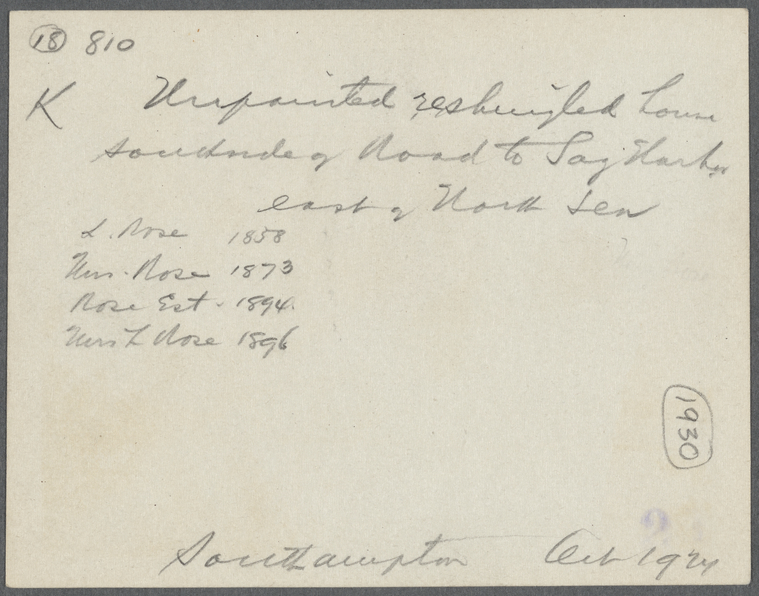 18 810
K Unpainted reshingled house
southside of Road to Sag Harbor
east of North Sea
L. Rose 1858
Mrs. Rose 1873
Rose Est. 1894.
Mrs L Rose 1896
1930
Southampton Oct